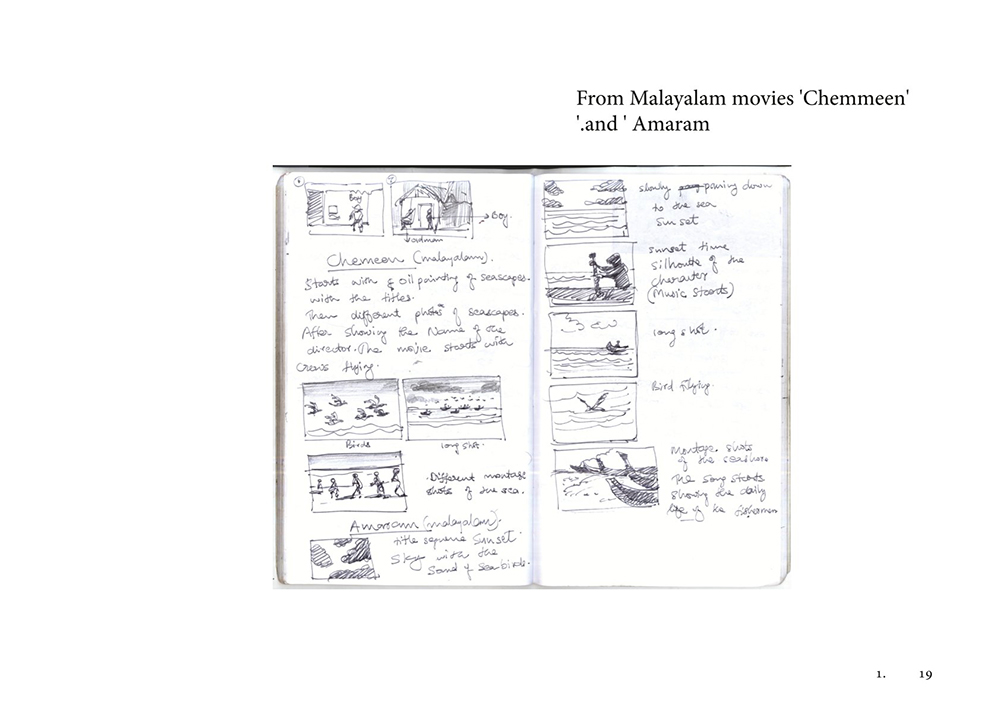 From Malayalam movies 'Chemmeen'
'.and ' Amaram
Boy
Boy.
oldman
Chemeen (malayalam).
Starts with oil painting of seascapes.
with the titles.
Then different photos of seascapes.
After showing the Name of the
director. The movie starts with
Crows flying.
Birds
long shot.
Different montage
shots of the sea.
Amaram (malayalam).
title sequence Sunset
Sky with the
Sound of Sea birds.
slowly paning down
to the sea
Sunset
sunset time
silhoutte of the
character
(Music Starts)
long shot.
Bird Flying.
Montage shots
of the seashore
The song starts
showing the daily
life of the fishermen
1. 19